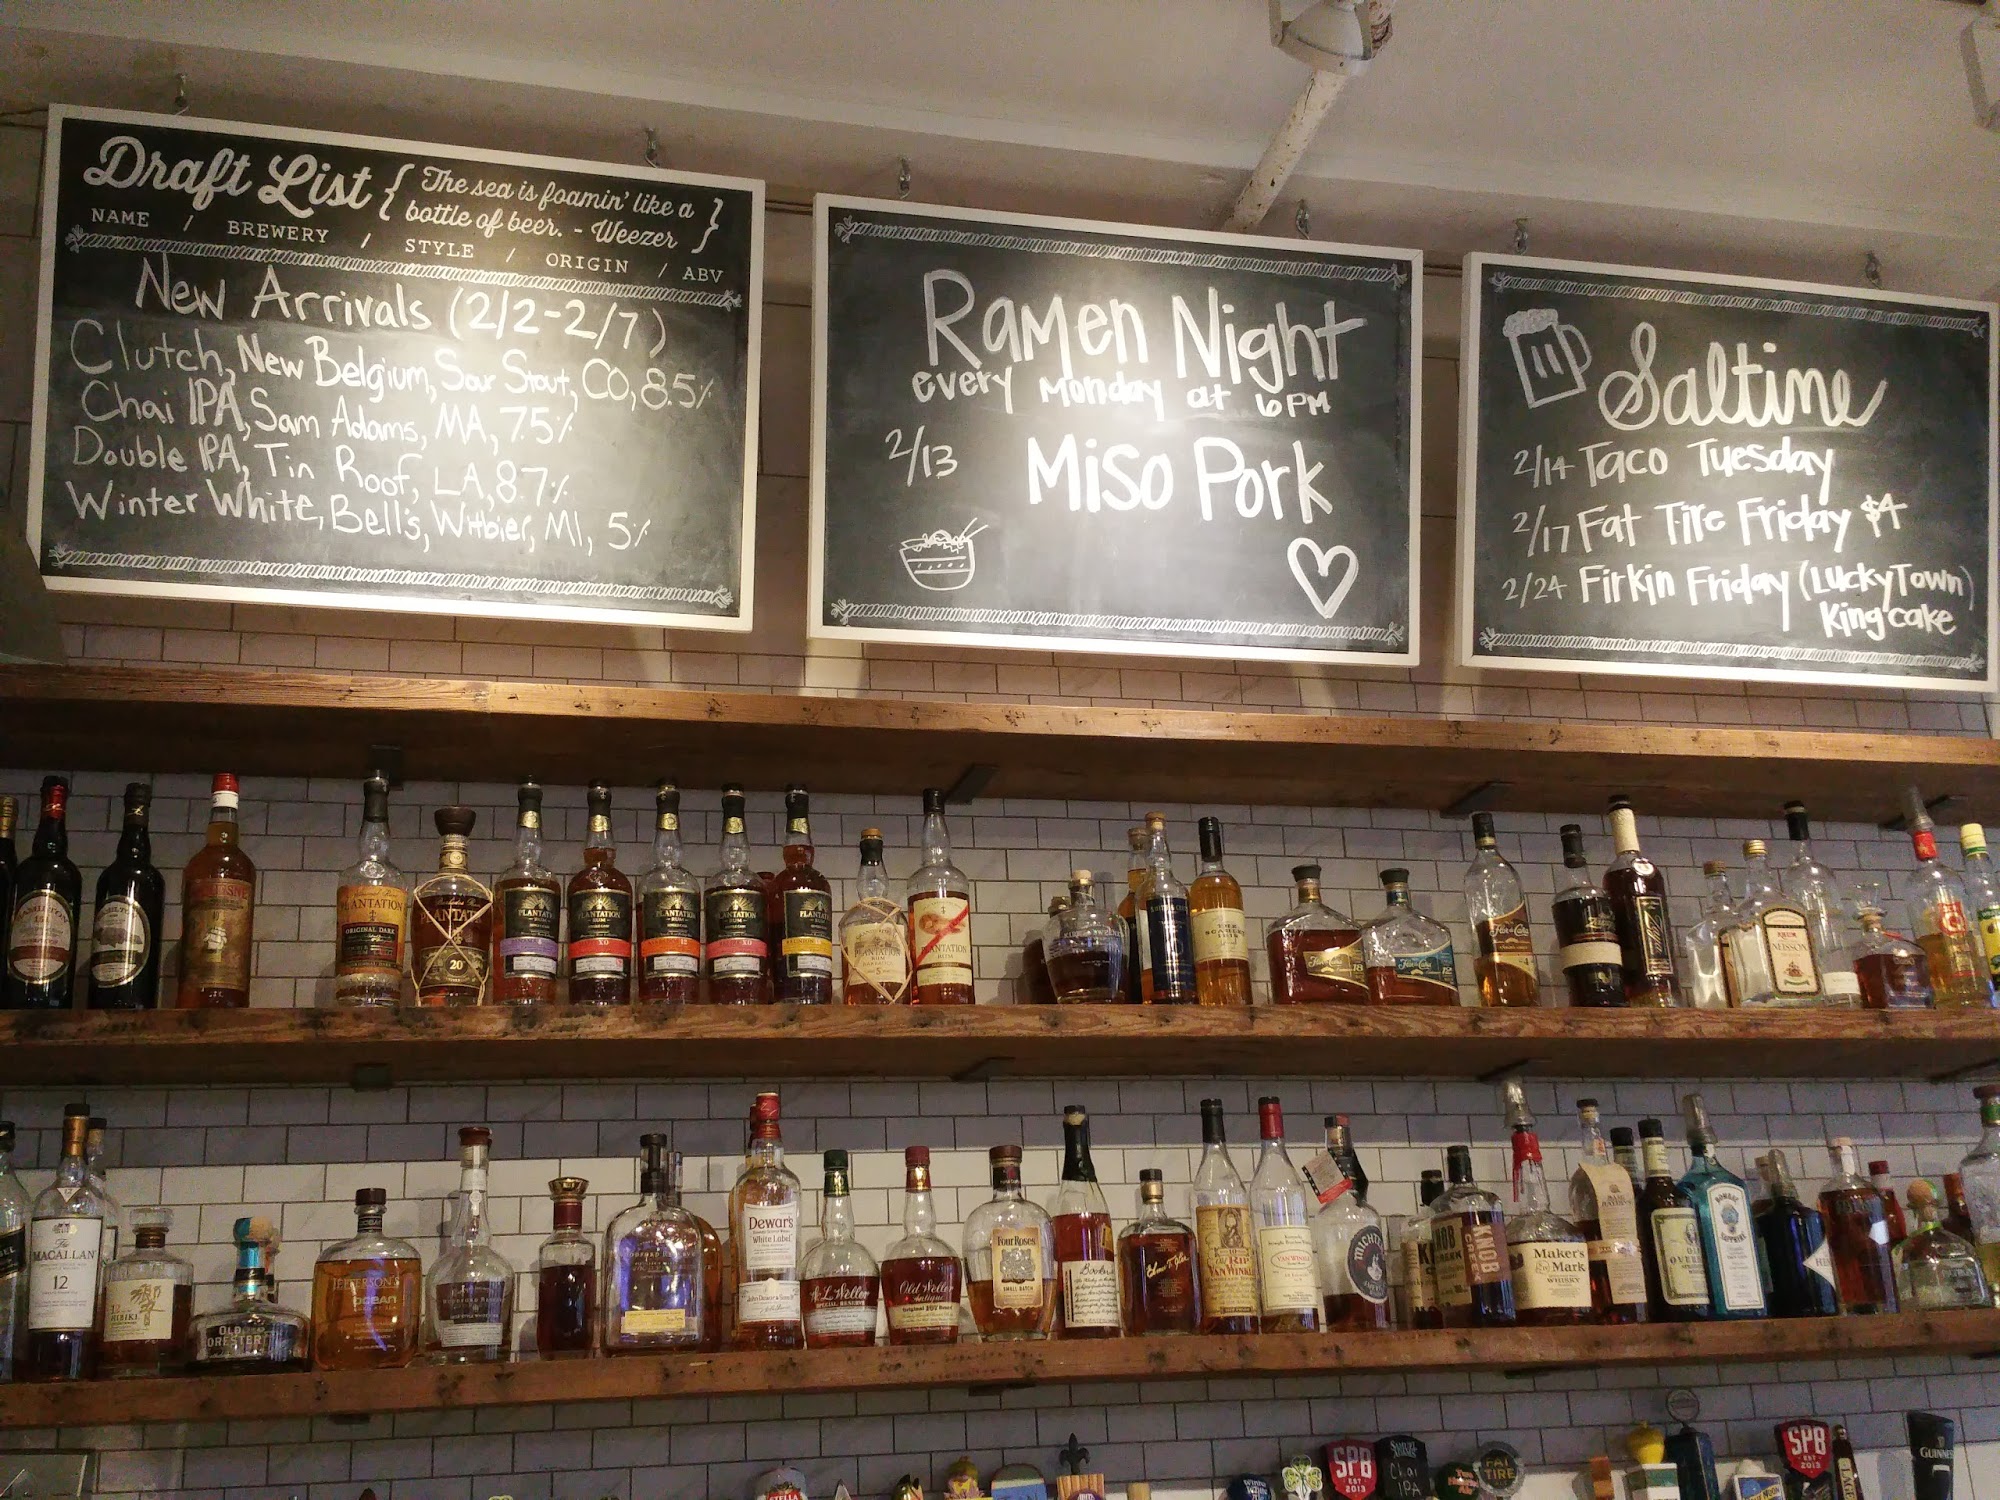 Draft List { The sea is foamin' like a
bottle of beer. - Weezer }
NAME / BREWERY / STYLE / ORIGIN / ABV
New Arrivals (2/2-2/7)
Clutch, New Belgium, Sour Stout, CO, 8.5%
Chai IPA, Sam Adams, MA, 7.5%
Double IPA, Tin Roof, LA, 8.7%
Winter White, Bell's, Witbier, MI, 5%
Ramen Night
every Monday at 6PM
2/13 Miso Pork
Saltine
2/14 Taco Tuesday
2/17 Fat Tire Friday $4
2/24 Firkin Friday (Lucky Town)
King cake
PLANTATION
ORIGINAL DARK
PLANTATION
20
PLANTATION
RUM
PLANTATION
RUM
XO
PLANTATION
RUM
PLANTATION
RUM
PLANTATION
PLANTATION
5
PLANTATION
18
12
NEISSON
The
MACALLAN
12
12
HIBIKI
OLD
FORESTER
JEFFERSON'S
OCEAN
Dewar's
White Label
W.L. Weller
SPECIAL RESERVE
Old Weller
Antique
Original 107 Brand
Four Roses
SMALL BATCH
Booker's
Elmer T. Lee
Old RIP
VAN WINKLE
VAN WINKLE
MICHTER'S
KNOB
CREEK
Maker's
Mark
WHISKY
BOMBAY
SAPPHIRE
STELLA
SPB
EST
2013
SAMUEL
ADAMS
Chai
IPA
FAT
TIRE
SPB
EST
2013
GUINNESS